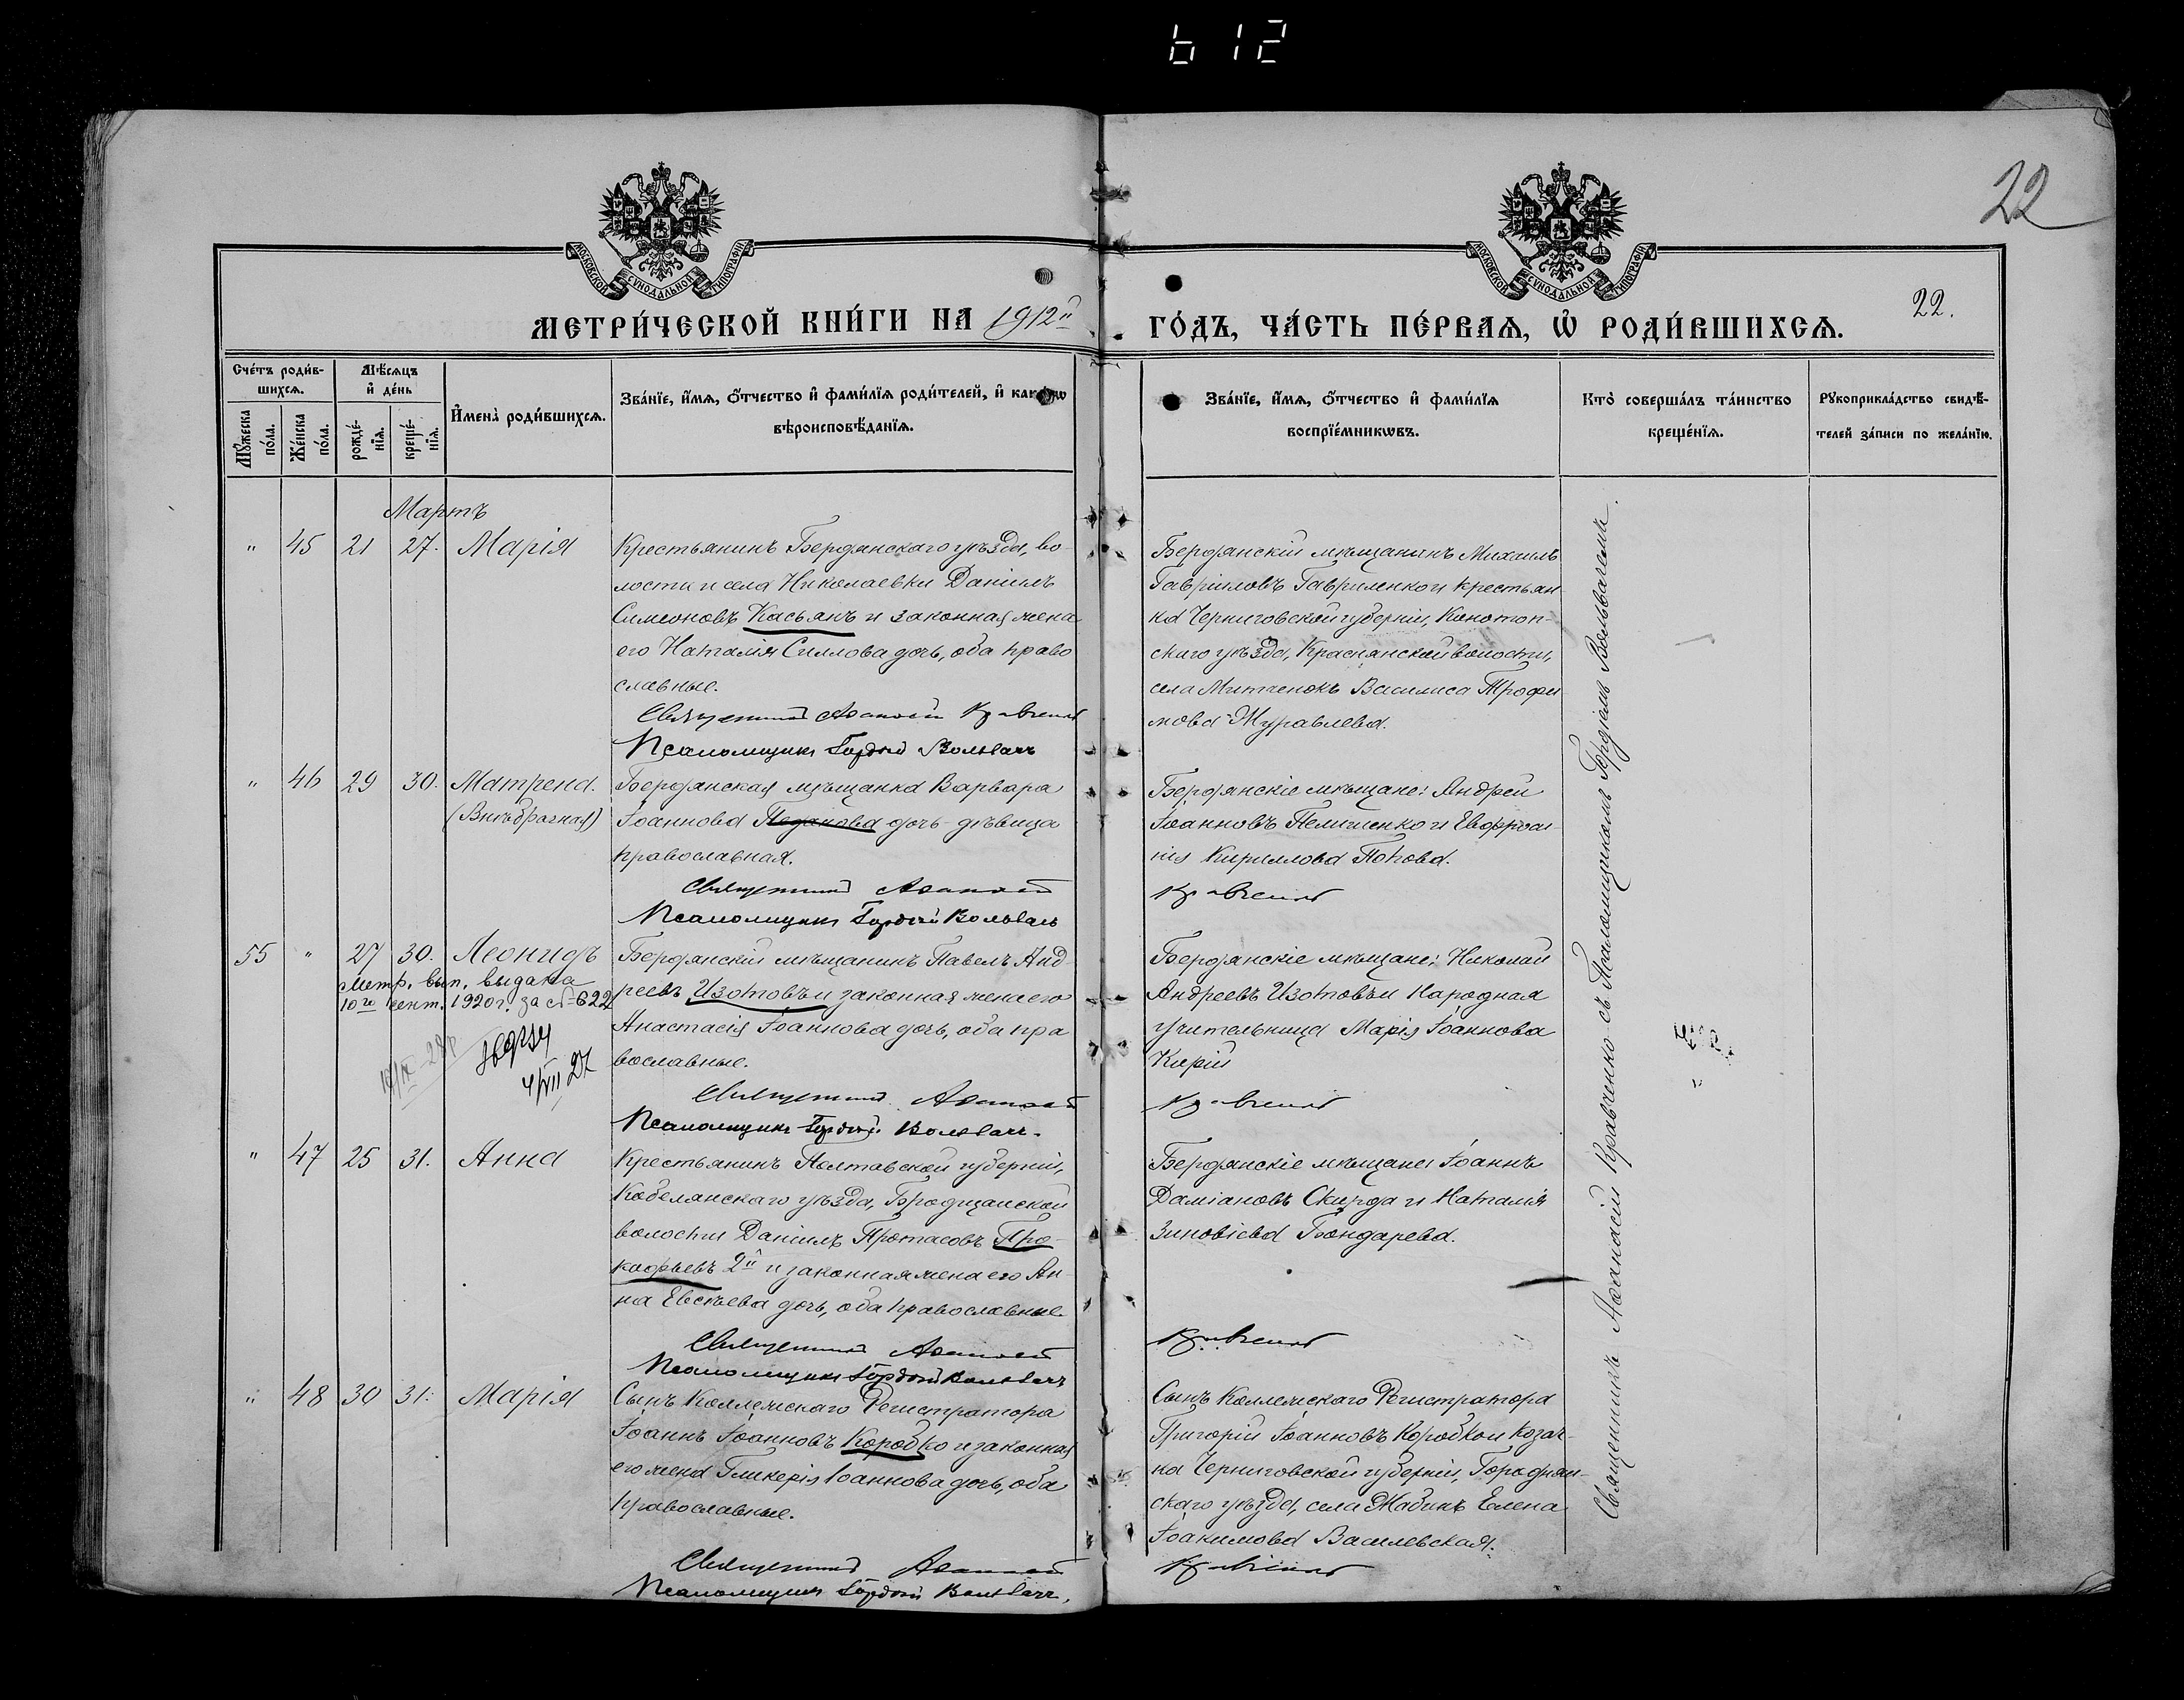 612
22
МОСКОВСКОЙ СУНОДАЛЬНОЙ ТИПОГРАФІИ
МОСКОВСКОЙ СУНОДАЛЬНОЙ ТИПОГРАФІИ
МЕТРИ́ЧЕСКОЙ КНИ́ГИ НА 1912й
ГО́ДЪ, ЧА́СТЬ ПЕ́РВАѦ, Ѡ҆ РОДИ́ВШИХСѦ.
22.
Сче́тъ роди́в-
шихсѧ.
Мѣ́сяцъ
и҆ де́нь
Мꙋ́жеска
по́ла.
Же́нска
по́ла.
рожде́-
нїѧ.
креще́-
нїѧ.
И҆мена̀ роди́вшихсѧ.
Зва́нїе, и҆́мѧ, ѻ҆́тчество и҆ фами́лїѧ роди́телей, и҆
вѣроисповѣ́данїѧ.
Зва́нїе, и҆́мѧ, ѻ҆́тчество и҆ фами́лїѧ
воспрїе́мникѡвъ.
Кто̀ соверша́лъ та́инство
креще́нїѧ.
Рꙋкоприкла́дство свидѣ́-
телей за́писи по жела́нїю.
Мартъ
" 45 21 27. Марія
Крестьянинъ Бердянскаго уѣзда, во-
лости и села Николаевки Даніилъ
Симеоновъ Касьянъ и законная жена
его Наталія Силлова дочь, оба право
славные.
Священникъ Аѳанасій Кравченко
Псаломщикъ Гордій Вольвачъ
Бердянскій мѣщанинъ Михаилъ
Гавріиловъ Гавриленко и крестьян
ка Черниговской губерніи, Конотоп-
скаго уѣзда, Краснянской волости,
села Митченокъ Василиса Трофи
мова Журавлева.
" 46 29 30. Матрена.
(Внѣбрачная)
Бердянская мѣщанка Варвара
Іоаннова дочь-дѣвица
православная.
Священникъ Аѳанасій
Псаломщикъ Гордій Вольвачъ
Бердянскіе мѣщане: Андрей
Іоанновъ Пелишенко и Евфроси-
нія Кириллова Попова.
Кравченко
55 " 27 30. Леонидъ
Метр. вып. выдана
10го сент. 1920 г. за № 622
VII 27
Бердянскій мѣщанинъ Павелъ Анд-
реевъ Изотовъ и законная жена его
Анастасія Іоаннова дочь, оба пра
вославные.
Священникъ Аѳанасій
Псаломщикъ Гордій Вольвачъ.
Бердянскіе мѣщане: Николай
Андреевъ Изотовъ и народная
учительница Марія Іоаннова
Кирій
Кравченко
" 47 25 31. Анна
Крестьянинъ Полтавской губерніи,
Кобелянскаго уѣзда, Бродщанской
волости Даніилъ Протасовъ Про-
кофьевъ 2й и законная жена его Ан-
на Евсѣева дочь, оба православные.
Священникъ Аѳанасій
Псаломщикъ Гордій Вольвачъ
Бердянскіе мѣщане Іоаннъ
Даміановъ Скирда и Наталія
Зиновіева Бондарева.
Кравченко
" 48 30 31. Марія
Сынъ Коллежскаго Регистратора
Іоаннъ Іоанновъ Коробко и законная
его жена Гликерія Іоаннова дочь, оба
православные.
Священникъ Аѳанасій
Псаломщикъ Гордій Вольвачъ.
Сынъ Коллежскаго Регистратора
Григорій Іоанновъ Коробко и козач-
ка Черниговской губерніи, Городнян-
скаго уѣзда, села Жабинъ Елена
Іоакимова Василевская.
Кравченко
Священникъ Аѳанасій Кравченко съ Псаломщикомъ Гордіемъ Вольвачемъ.